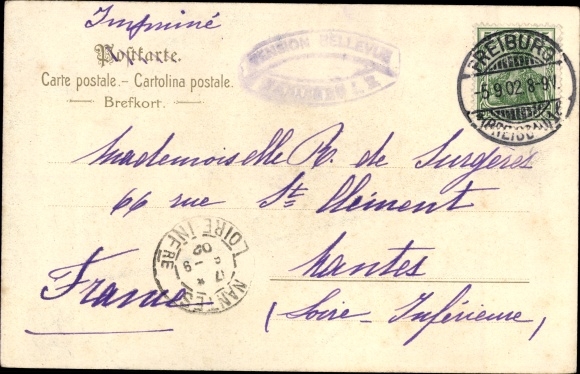 Imprimé
Postkarte.
Carte postale. – Cartolina postale.
Brefkort.
PENSION BELLEVUE
FREIBURG
-6.9.02.8-9V
(BREISGAU)
Mademoiselle R. de Surgères
66 rue St Clément
Nantes
(Loire-Inférieure)
France
NANTES
LOIRE INFRE